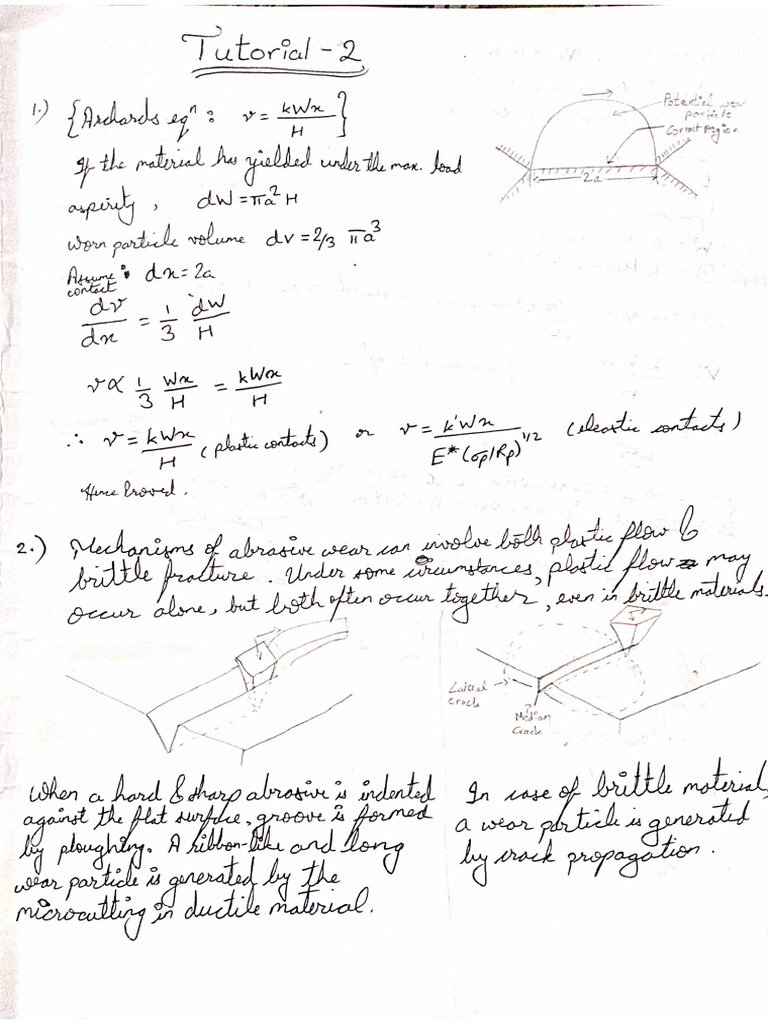 Tutorial - 2
1.) {Archards eqⁿ : v = kWx/H}
Potential wear
particle
Contact region
2a
If the material has yielded under the max. load
asperity, dW = πa²H
Worn particle volume dv = 2/3 πa³
Assume contact : dx = 2a
dv/dx = 1/3 dW/H
v ∝ 1/3 Wx/H = kWx/H
∴ v = kWx/H (plastic contacts) or v = k'Wx/E*(σp/Rp)^1/2 (eleastic contacts)
Hence Proved.
2.) Mechanisms of abrasive wear can involve both plastic flow &
brittle fracture. Under some circumstances, plastic flow may
occur alone, but both often occur together, even in brittle materials.
Lateral
crack
Median
Crack
When a hard & sharp abrasive is indented
against the flat surface, groove is formed
by ploughing. A ribbon-like and long
wear particle is generated by the
microcutting in ductile material.
In case of brittle material,
a wear particle is generated
by crack propagation.